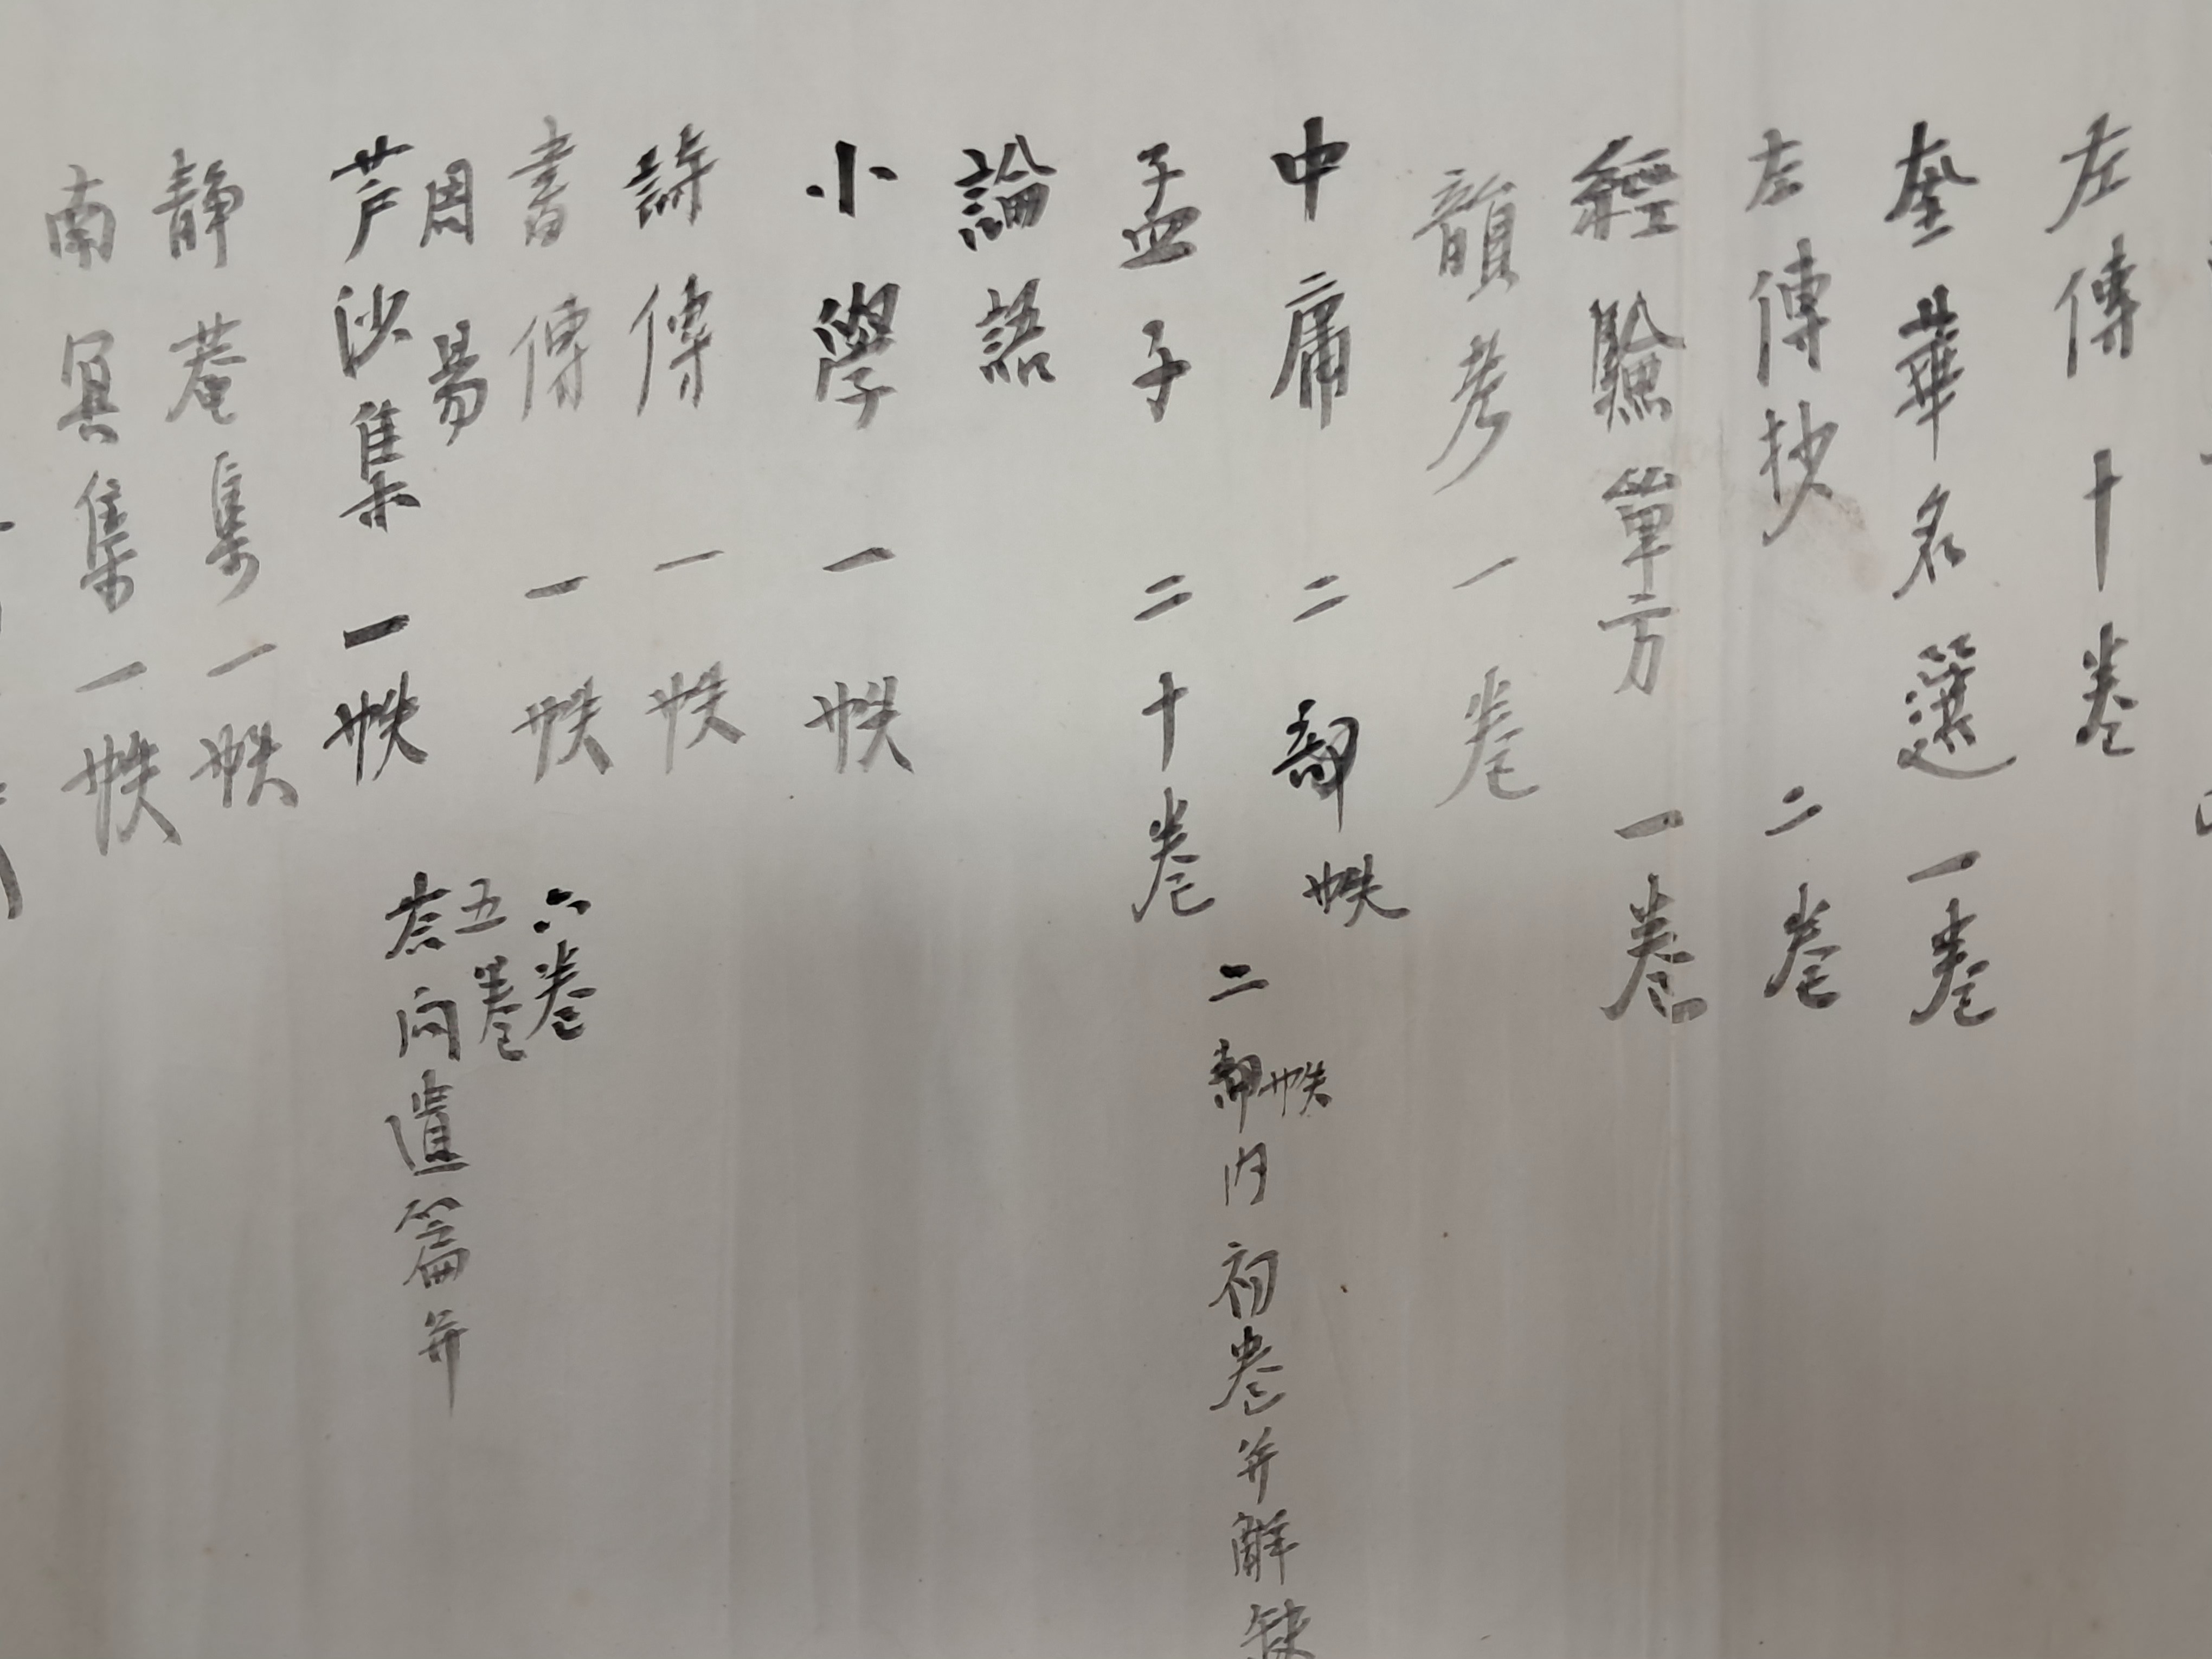 左傳 十卷
奎華名選 一卷
左傳抄 二卷
經驗單方 一卷
韻考 一卷
中庸 二部 帙
孟子 二十卷
二部帙內初卷并解缺
論語
小學 一帙
詩傳 一帙
書傳 一帙 六卷
周易 五卷
芦沙集 一帙 答问遺篇并
靜菴集 一帙
南冥集 一帙